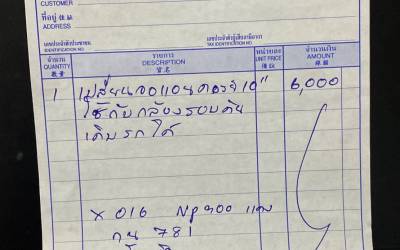 CUSTOMER
ที่อยู่ 住址
ADDRESS
เลขประจำตัวประชาชน
IDENTIFICATION NO.
เลขประจำตัวผู้เสียภาษีอากร
TAX IDENTIFICATION NO.
จำนวน QUANTITY 數量
รายการ DESCRIPTION 貨名
หน่วยละ UNIT PRICE 價銀
จำนวนเงิน AMOUNT 銀額
1 เปลี่ยนจอแอนดรอย 10" 6,000
ใช้กับกล้องรอบคัน
เดิมรถได้
x 016 Np 300
กน 781